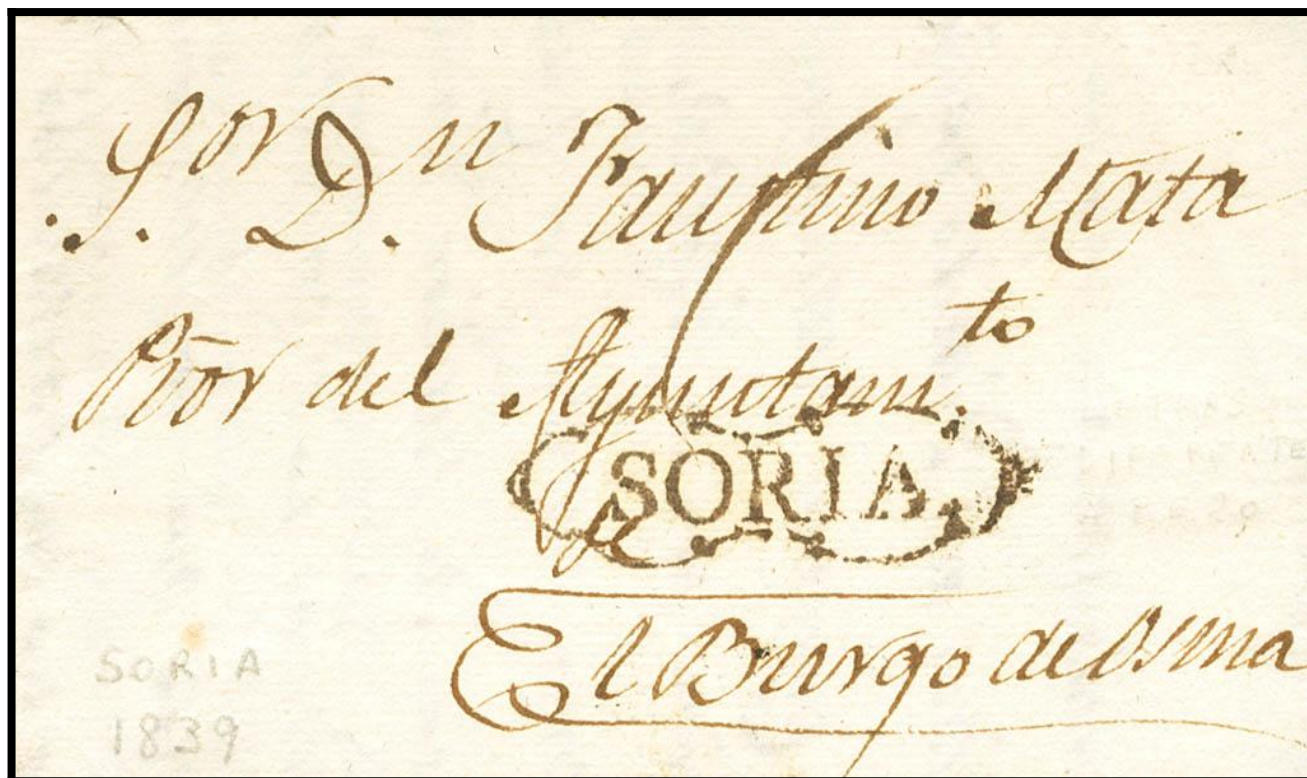 S.or D.n Faustino Mata
Prōr del Ayuntam.to
SORIA
de
El Burgo de Osma
SORIA
1839